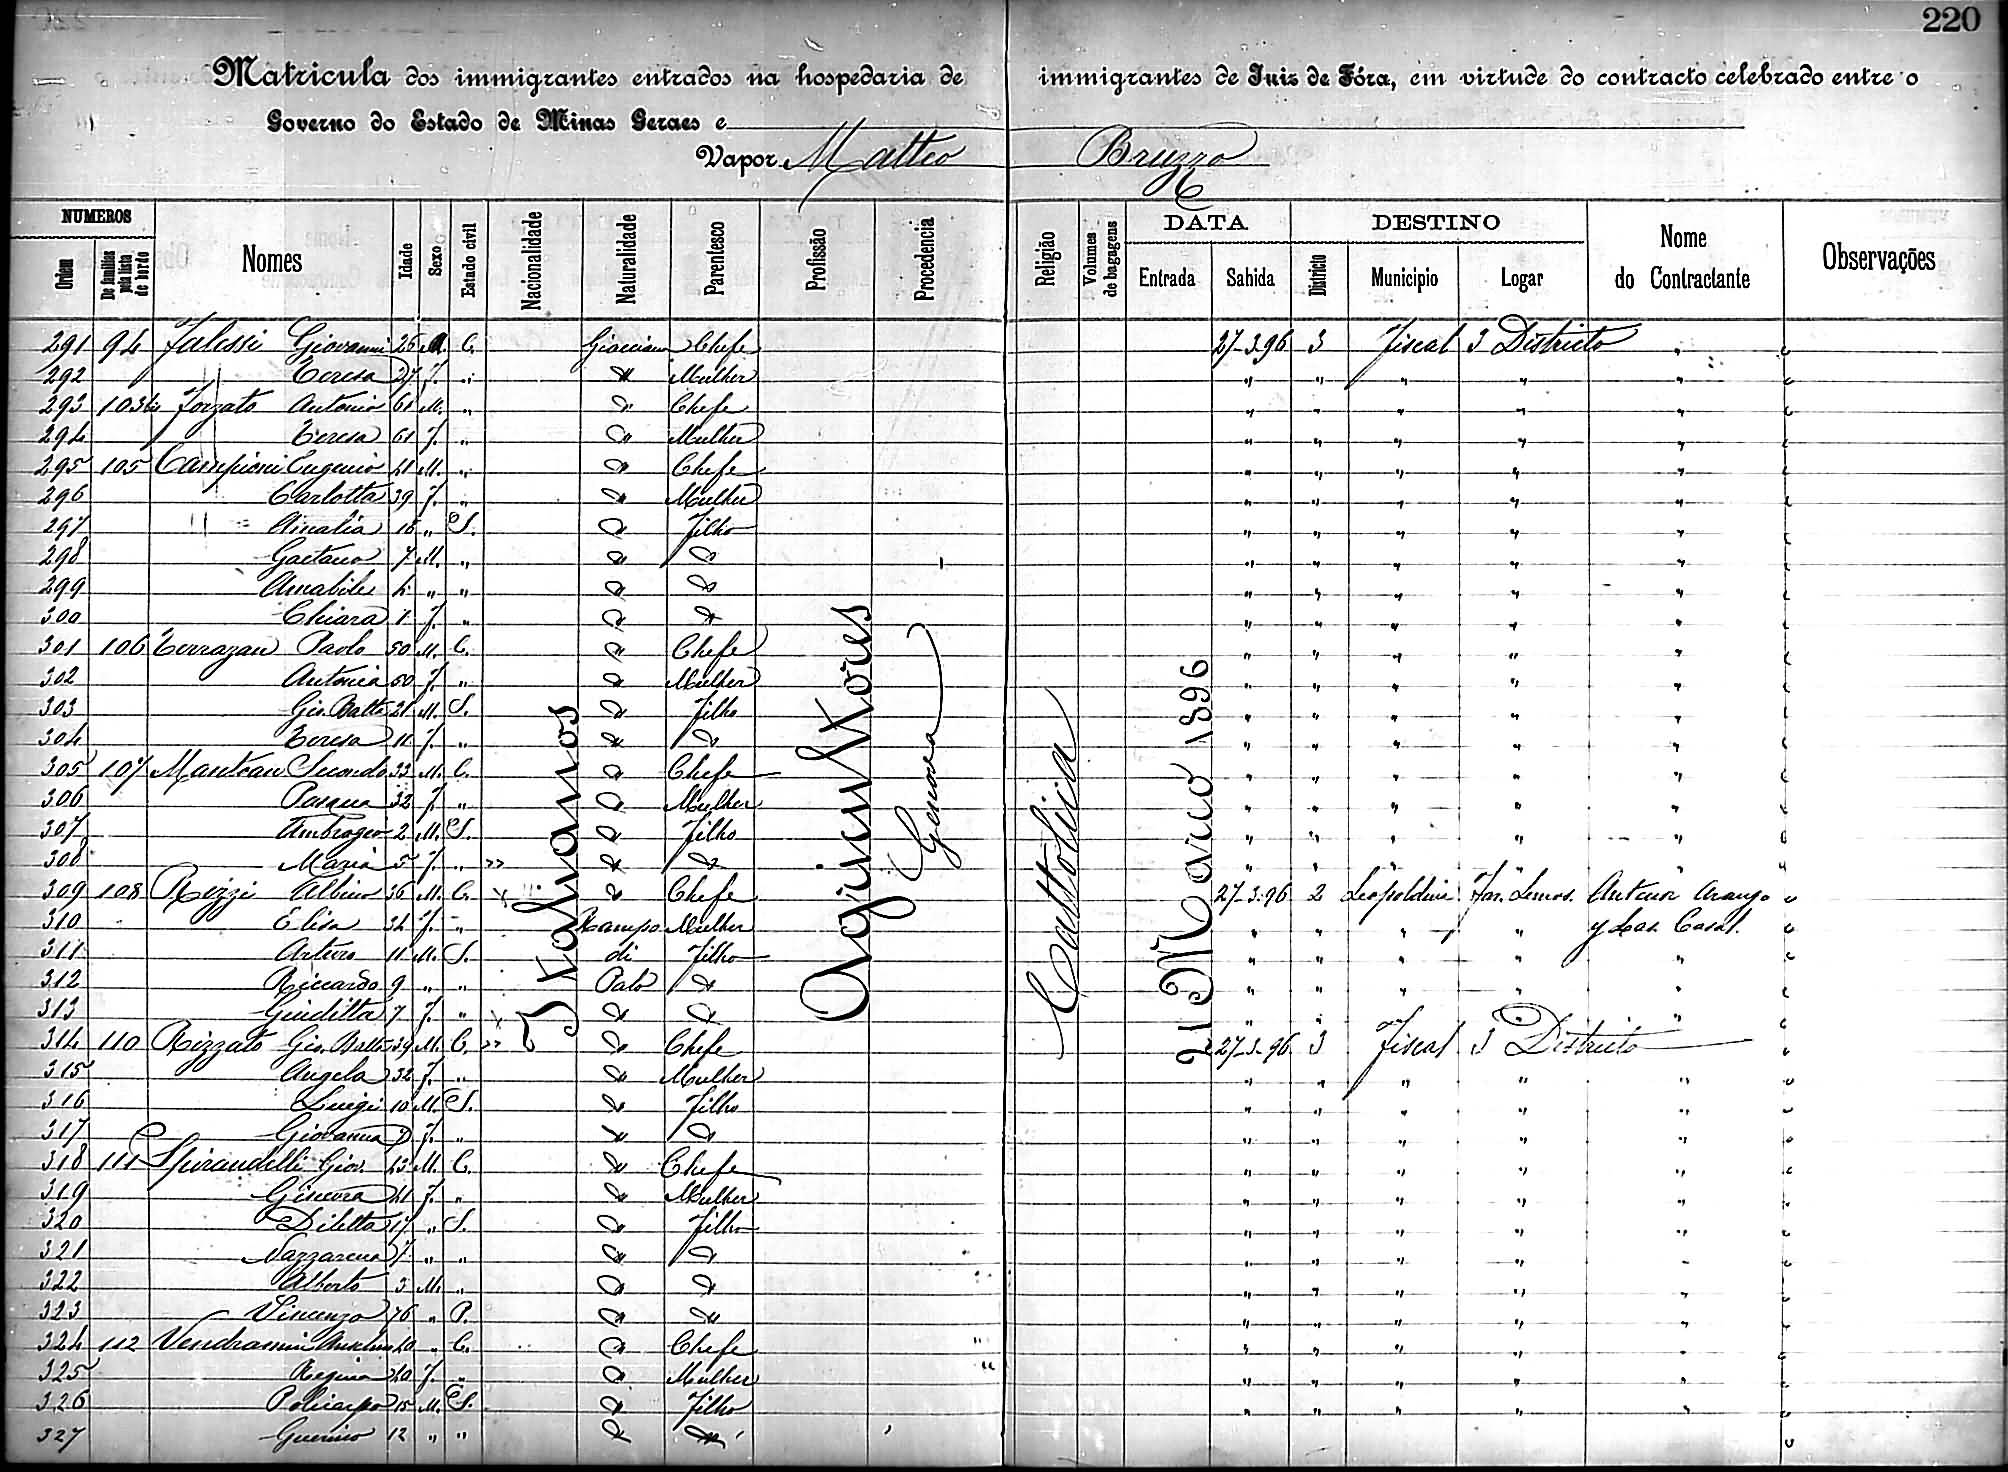 220
Matricula dos immigrantes entrados na hospedaria de immigrantes de Juiz de Fóra, em virtude do contracto celebrado entre o
Governo do Estado de Minas Geraes e
Vapor Matteo Bruzzo
NUMEROS DATA DESTINO
Ordem De familias pela lista de bordo Nomes Idade Sexo Estado civil Nacionalidade Naturalidade Parentesco Profissão Procedencia Religião Volumes de bagagens Entrada Sahida Districto Municipio Logar Nome do Contractante Observações
Italianos Agricultores Genova Cattolica 21 Março 1896
291 94 Giovanni 26 M. C. Chefe 27-3-96 3 Fiscal 3 Districto "
292 Teresa 27 F. " " Mulher " " " " "
293 103 bis Forzato Antonio 61 M. " " Chefe " " " " "
294 Teresa 61 F. " " Mulher " " " " "
295 105 Campioni Eugenio 41 M. " " Chefe " " " " "
296 Carlotta 39 F. " " Mulher " " " " "
297 Amalia 16 " S. " Filho " " " " "
298 Gaetano 7 M. " " " " " " " "
299 Amabile 4 " " " " " " " " "
300 Chiara 1 F. " " " " " " " "
301 106 Terrazan Paolo 50 M. C. " Chefe " " " " "
302 Antonia 50 F. " " Mulher " " " " "
303 Gio. Batta 21 M. S. " Filho " " " " "
304 Teresa 11 F. " " " " " " " "
305 107 Mantean Secondo 33 M. C. " Chefe " " " " "
306 Pasqua 32 F. " " Mulher " " " " "
307 Ambrogio 2 M. S. " Filho " " " " "
308 Maria 5 F. " " " " " " " "
309 108 Rizzi Albino 36 M. C. " Chefe 27-3-96 2 Leopoldina Faz. Lemos. Antenor Araujo
310 Elisa 34 F. " Campo Mulher " " " " y Las Casas.
311 Arturo 11 M. S. di Filho " " " " "
312 Riccardo 9 " " " " " " " "
313 Giuditta 7 F. " " " " " " " "
314 110 Rizzato Gio. Batta 39 M. C. " Chefe 27-3-96 3 Fiscal 3 Districto
315 Angela 32 F. " " Mulher " " " " "
316 Luigi 10 M. S. " Filho " " " " "
317 Giovanna F. " " " " " " " "
318 111 Spirandelli Giov. 43 M. C. " Chefe " " " " "
319 Ginevra 41 F. " " Mulher " " " " "
320 Diletta 17 " S. " Filho " " " " "
321 Nazzarena 7 " " " " " " " " "
322 Alberto 3 M. " " " " " " " "
323 Vincenzo 76 " " " " " " " "
324 112 Vendramini Anselmo 40 " C. " Chefe " " " " "
325 Regina 40 F. " " Mulher " " " " "
326 Policarpo 15 M. S. " Filho " " " " "
327 Guerino 12 " " " "